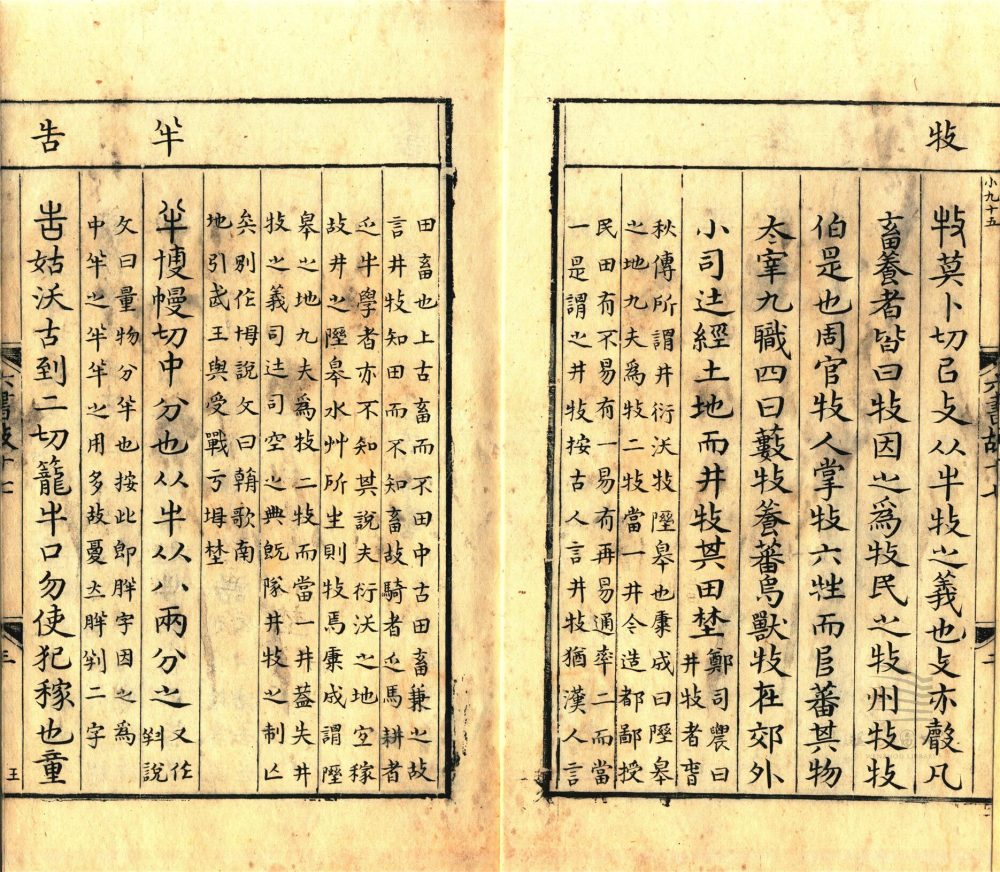 牧
小九十五
牧莫卜切㠯攴从牛牧之義也攴亦聲凡
畜養者皆曰牧因之爲牧民之牧州牧牧
伯是也周官牧人掌牧六牲而㠯蕃其物
大宰九職四曰藪牧養蕃鳥獸牧在郊外
小司辻經土地而井牧其田埜
鄭司農曰
井牧者
秋傳所謂井衍沃牧隰皋也康成曰隰皋
之地九夫爲牧二牧當一井今造都鄙授
民田有不易有一易有再易通率二而當
一是謂之井牧按古人言井牧猶漢人言
六書故十七
二
半
告
田畜也上古畜而不田中古田畜兼之故
言井牧知田而不知畜故騎者亾馬耕者
亾牛學者亦不知其說夫衍沃之地空稼
故井之隰皋水艸所生則牧馬康成謂隰
皋之地九夫爲牧二牧而當一井葢失井
牧之義司辻司空之典旣隊井牧之制亾
矣別作坶說文曰朝歌南
地引武王與受戰亏坶埜
半博幔切中分也从牛从八兩分之
又作
㪵說
文曰量物分半也按此卽胖字因之爲
中半之半半之用多故憂太胖㪵二字
告姑沃古到二切籠牛口勿使犯稼也童
六書故十七
三
王